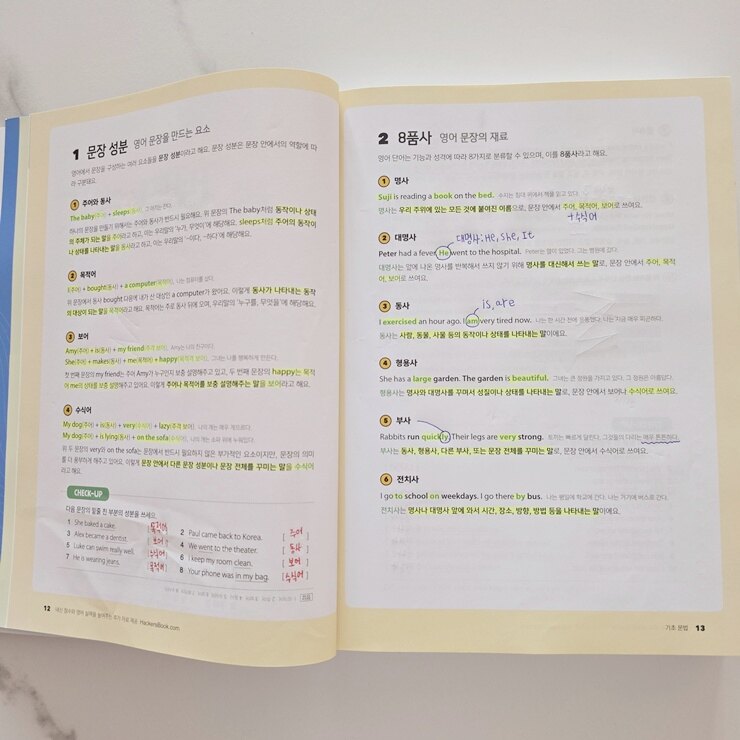 1 문장 성분 영어 문장을 만드는 요소
영어에서 문장을 구성하는 여러 요소들을 문장 성분이라고 해요. 문장 성분은 문장 안에서의 역할에 따
라 구분돼요.
1 주어와 동사
The baby(주어) + sleeps(동사). 그 아기는 잔다.
하나의 문장을 만들기 위해서는 주어와 동사가 반드시 필요해요. 위 문장의 The baby처럼 동작이나 상태
의 주체가 되는 말을 주어라고 하고, 이는 우리말의 '누가, 무엇이'에 해당해요. sleeps처럼 주어의 동작이
나 상태를 나타내는 말을 동사라고 하고, 이는 우리말의 '~이다, ~하다'에 해당해요.
2 목적어
I(주어) + bought(동사) + a computer(목적어). 나는 컴퓨터를 샀다.
위 문장에서 동사 bought 다음에 내가 산 대상인 a computer가 왔어요. 이렇게 동사가 나타내는 동작
의 대상이 되는 말을 목적어라고 해요. 목적어는 주로 동사 뒤에 오며, 우리말의 '누구를, 무엇을'에 해당해요.
3 보어
Amy(주어) + is(동사) + my friend(주격 보어). Amy는 나의 친구이다.
She(주어) + makes(동사) + me(목적어) + happy(목적격 보어). 그녀는 나를 행복하게 만든다.
첫 번째 문장의 my friend는 주어 Amy가 누구인지 보충 설명해주고 있고, 두 번째 문장의 happy는 목적
어 me의 상태를 보충 설명해주고 있어요. 이렇게 주어나 목적어를 보충 설명해주는 말을 보어라고 해요.
4 수식어
My dog(주어) + is(동사) + very(수식어) + lazy(주격 보어). 나의 개는 매우 게으르다.
My dog(주어) + is lying(동사) + on the sofa(수식어). 나의 개는 소파 위에 누워있다.
위 두 문장의 very와 on the sofa는 문장에서 반드시 필요하지는 않은 부가적인 요소이지만, 문장의 의미
를 더 풍부하게 해주고 있어요. 이렇게 문장 안에서 다른 문장 성분이나 문장 전체를 꾸미는 말을 수식어
라고 해요.
CHECK-UP
다음 문장의 밑줄 친 부분의 성분을 쓰세요.
1 She baked a cake. [목적어]
2 Paul came back to Korea. [주어]
3 Alex became a dentist. [보어]
4 We went to the theater. [동사]
5 Luke can swim really well. [수식어]
6 I keep my room clean. [보어]
7 He is wearing jeans. [목적어]
8 Your phone was in my bag. [수식어]
12 내신 점수와 영어 실력을 높여주는 추가 자료 제공 HackersBook.com
2 8품사 영어 문장의 재료
영어 단어는 기능과 성격에 따라 8가지로 분류할 수 있으며, 이를 8품사라고 해요.
1 명사
Suji is reading a book on the bed. 수지는 침대 위에서 책을 읽고 있다.
명사는 우리 주위에 있는 모든 것에 붙여진 이름으로, 문장 안에서 주어, 목적어, 보어로 쓰여요.
+수식어
2 대명사
대명사: He, She, It
Peter had a fever. He went to the hospital. Peter는 열이 있었다. 그는 병원에 갔다.
대명사는 앞에 나온 명사를 반복해서 쓰지 않기 위해 명사를 대신해서 쓰는 말로, 문장 안에서 주어, 목적
어, 보어로 쓰여요.
3 동사
is, are
I exercised an hour ago. I am very tired now. 나는 한 시간 전에 운동했다. 나는 지금 매우 피곤하다.
동사는 사람, 동물, 사물 등의 동작이나 상태를 나타내는 말이에요.
4 형용사
She has a large garden. The garden is beautiful. 그녀는 큰 정원을 가지고 있다. 그 정원은 아름답다.
형용사는 명사와 대명사를 꾸며서 성질이나 상태를 나타내는 말로, 문장 안에서 보어나 수식어로 쓰여요.
5 부사
Rabbits run quickly. Their legs are very strong. 토끼는 빠르게 달린다. 그것들의 다리는 매우 튼튼하다.
부사는 동사, 형용사, 다른 부사, 또는 문장 전체를 꾸미는 말로, 문장 안에서 수식어로 쓰여요.
6 전치사
I go to school on weekdays. I go there by bus. 나는 평일에 학교에 간다. 나는 거기에 버스로 간다.
전치사는 명사나 대명사 앞에 와서 시간, 장소, 방향, 방법 등을 나타내는 말이에요.
기초 문법 13